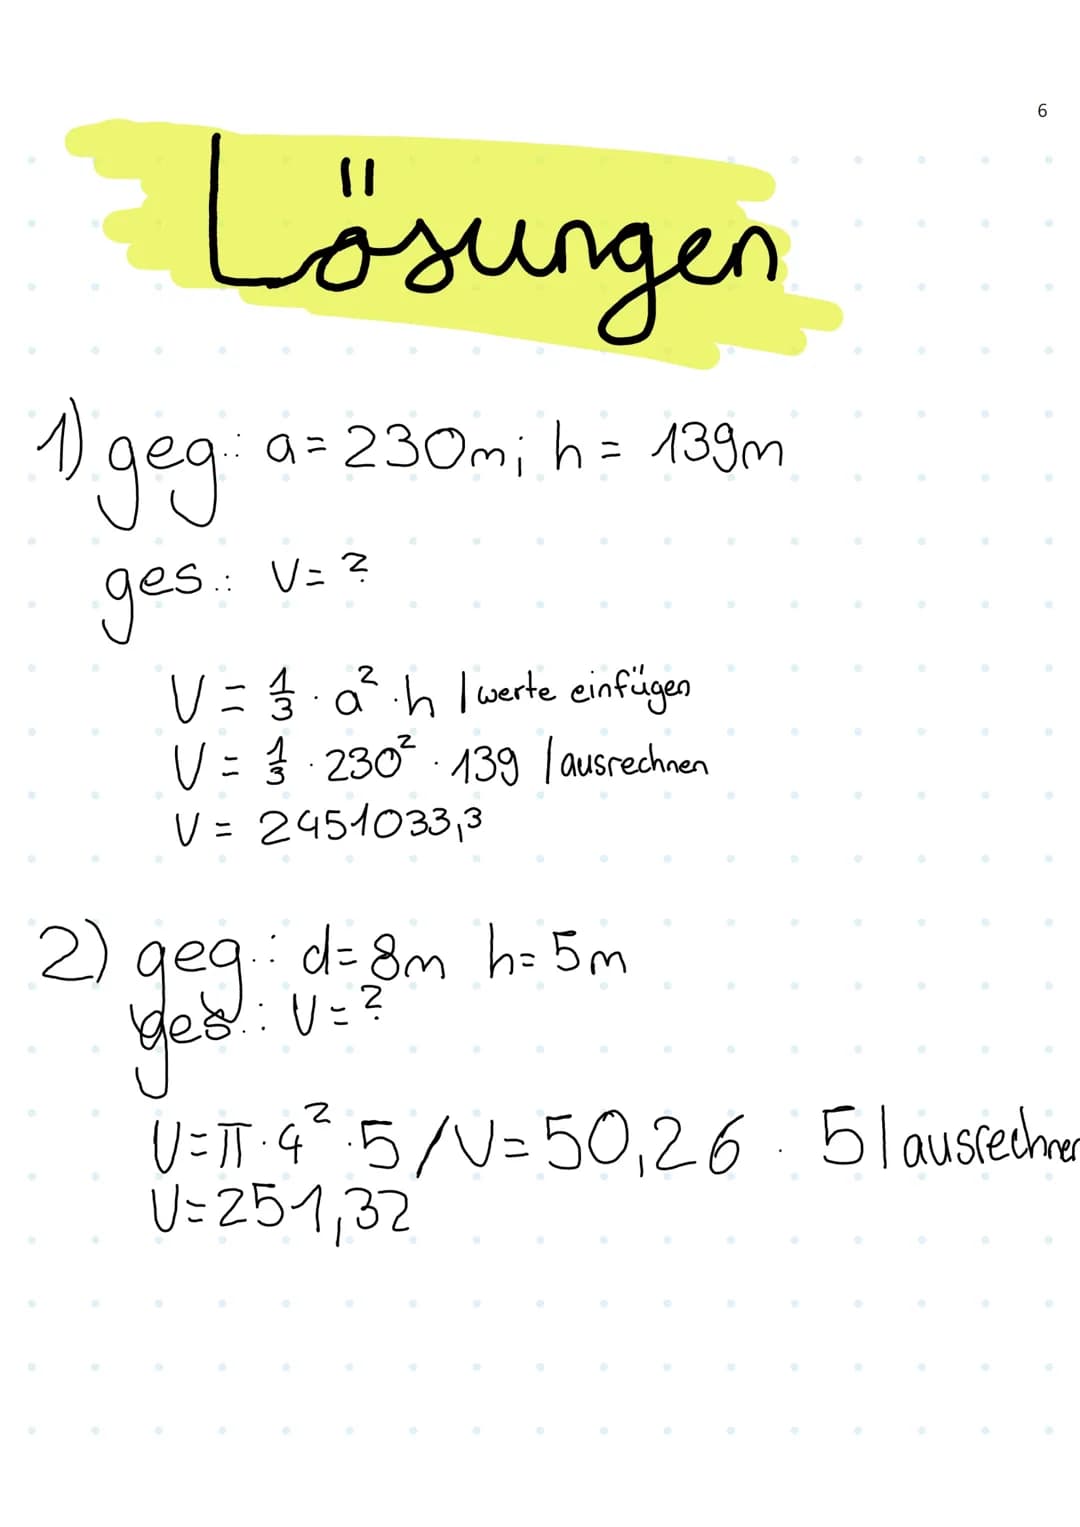 6
Lösungen
1) geg.: a = 230m; h = 139m
ges.: V = ?
V = 1/3 · a² · h | werte einfügen
V = 1/3 · 230² · 139 | ausrechnen
V = 2451033,3
2) geg.: d = 8m h = 5m
ges.: V = ?
V = π · 4² · 5 / V = 50,26 · 5 | ausrechnen
V = 251,32